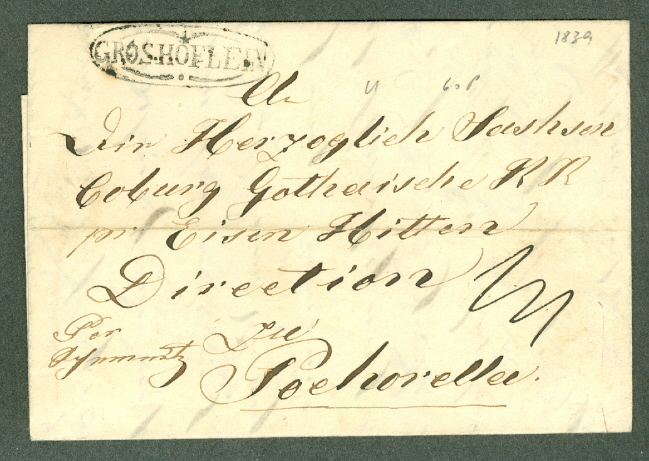 GROSHÖFLEIN
1839
An
Die Herzoglich Sachsen
Coburg Gothaische K K
pr Eisen Hitten
Direction
Per
zu
Pochorella.